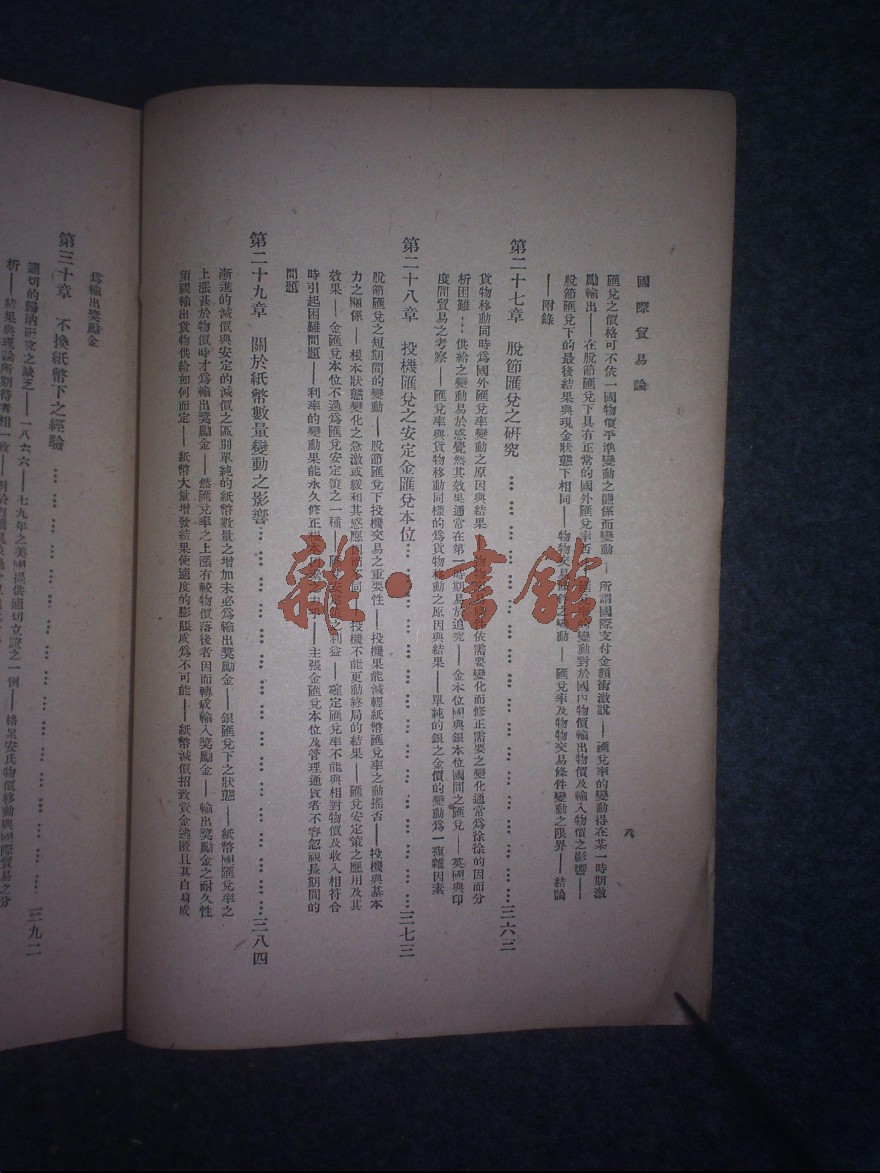 國際貿易論
八
匯兌之價格可不依一國物價平準變動之關係而變動——所謂國際支付金額衝激說——匯兌率的變動得在某一時期激
勵輸出——在脫節匯兌下具有正常的國外匯兌率否 變動對於國內物價輸出物價及輸入物價之影響——
脫節匯兌下的最後結果與現金狀態下相同——物物交易條件之變動——匯兌率及物物交易條件變動之限界——結論
——附錄
第二十七章 脫節匯兌之研究………………………………三六三
貨物移動同時為國外匯兌率變動之原因與結果—— 依需要變化而修正需要之變化通常為徐徐的因而分
析困難…供給之變動易於感覺然其效果通常在第一時期易於追究——金本位國與銀本位國間之匯兌——英國與印
度間貿易之考察——匯兌率與貨物移動同樣的為貨物移動之原因與結果——單純的銀之金價的變動為一複雜因素
第二十八章 投機匯兌之安定金匯兌本位………………………………三七三
脫節匯兌之短期間的變動——脫節匯兌下投機交易之重要性——投機果能減輕紙幣匯兌率之動搖否——投機與基本
力之關係——根本狀態變化之急激或緩和其感應 同 投機不能更動終局的結果——匯兌安定策之應用及其
效果——金匯兌本位不過為匯兌安定策之一種—— 利益——確定匯兌率不能與相對物價及收入相符合
時引起困難問題——利率的變動果能永久修正根本 ——主張金匯兌本位及管理通貨者不容忽視長期間的
問題
第二十九章 關於紙幣數量變動之影響………………………………三八四
漸進的減價與安定的減價之區別單純的紙幣數量之增加未必為輸出獎勵金——銀匯兌下之狀態——紙幣國匯兌率之
上漲甚於物價時才為輸出獎勵金——然匯兌率之上漲有較物價落後者因而轉成輸入獎勵金——輸出獎勵金之耐久性
須視輸出貨物供給如何而定——紙幣大量增發結果使適度的膨脹成為不可能——紙幣減價招致資金逃匿且其自身成
為輸出獎勵金
第三十章 不換紙幣下之經驗………………………………三九二
適切的歸納研究之缺乏——一八六六——七九年之美國提供適切立證之一例——格里安氏物價移動與國際貿易之分
析——結果與理論所期待者相一致——
雜·書館